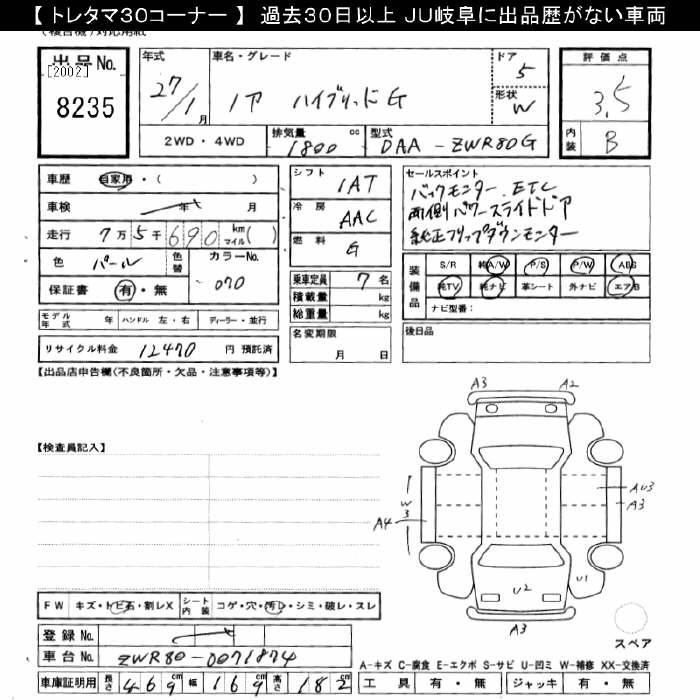 【 トレタマ30コーナー 】 過去30日以上 JU岐阜に出品歴がない車両
出品No.
[2002]
8235
年式 27/1月
車名・グレード
ノア ハイブリッドG
ドア 5
形状 W
2WD・4WD
排気量 1800 cc
型式 DAA-ZWR80G
評価点
3.5
内装 B
車歴 自家用・( )
車検 年 月
走行 7万5千690 km マイル( )
色 パール 色替 カラーNo. 070
保証書 有・無
シフト IAT
冷房 AAC
燃料 G
乗車定員 7 名
積載量 kg
総重量 kg
セールスポイント
バックモニター. ETC
両側パワースライドドア
純正フリップダウンモニター
装備品 S/R 純A/W P/S P/W ABS
純TV 純ナビ 革シート 外ナビ エアB
ナビ型番:
モデル年式 年 ハンドル 左・右 ディーラー・並行
リサイクル料金 12470 円 預託済
名変期限
月 日
後日品
【出品店申告欄(不良箇所・欠品・注意事項等)】
【検査員記入】
A3 A2
W3
A4
AU3
A3
U2 U1
A3
スペア
FW キズ・トビ石・割レX シート内装 コゲ・穴・汚レ・シミ・破レ・スレ
登録No.
車台No. ZWR80-0071874
車庫証明用 長さ 469 cm 幅 169 cm 高さ 182 cm
A-キズ C-腐食 E-エクボ S-サビ U-凹ミ W-補修 XX-交換済
工具 有・無 ジャッキ 有・無